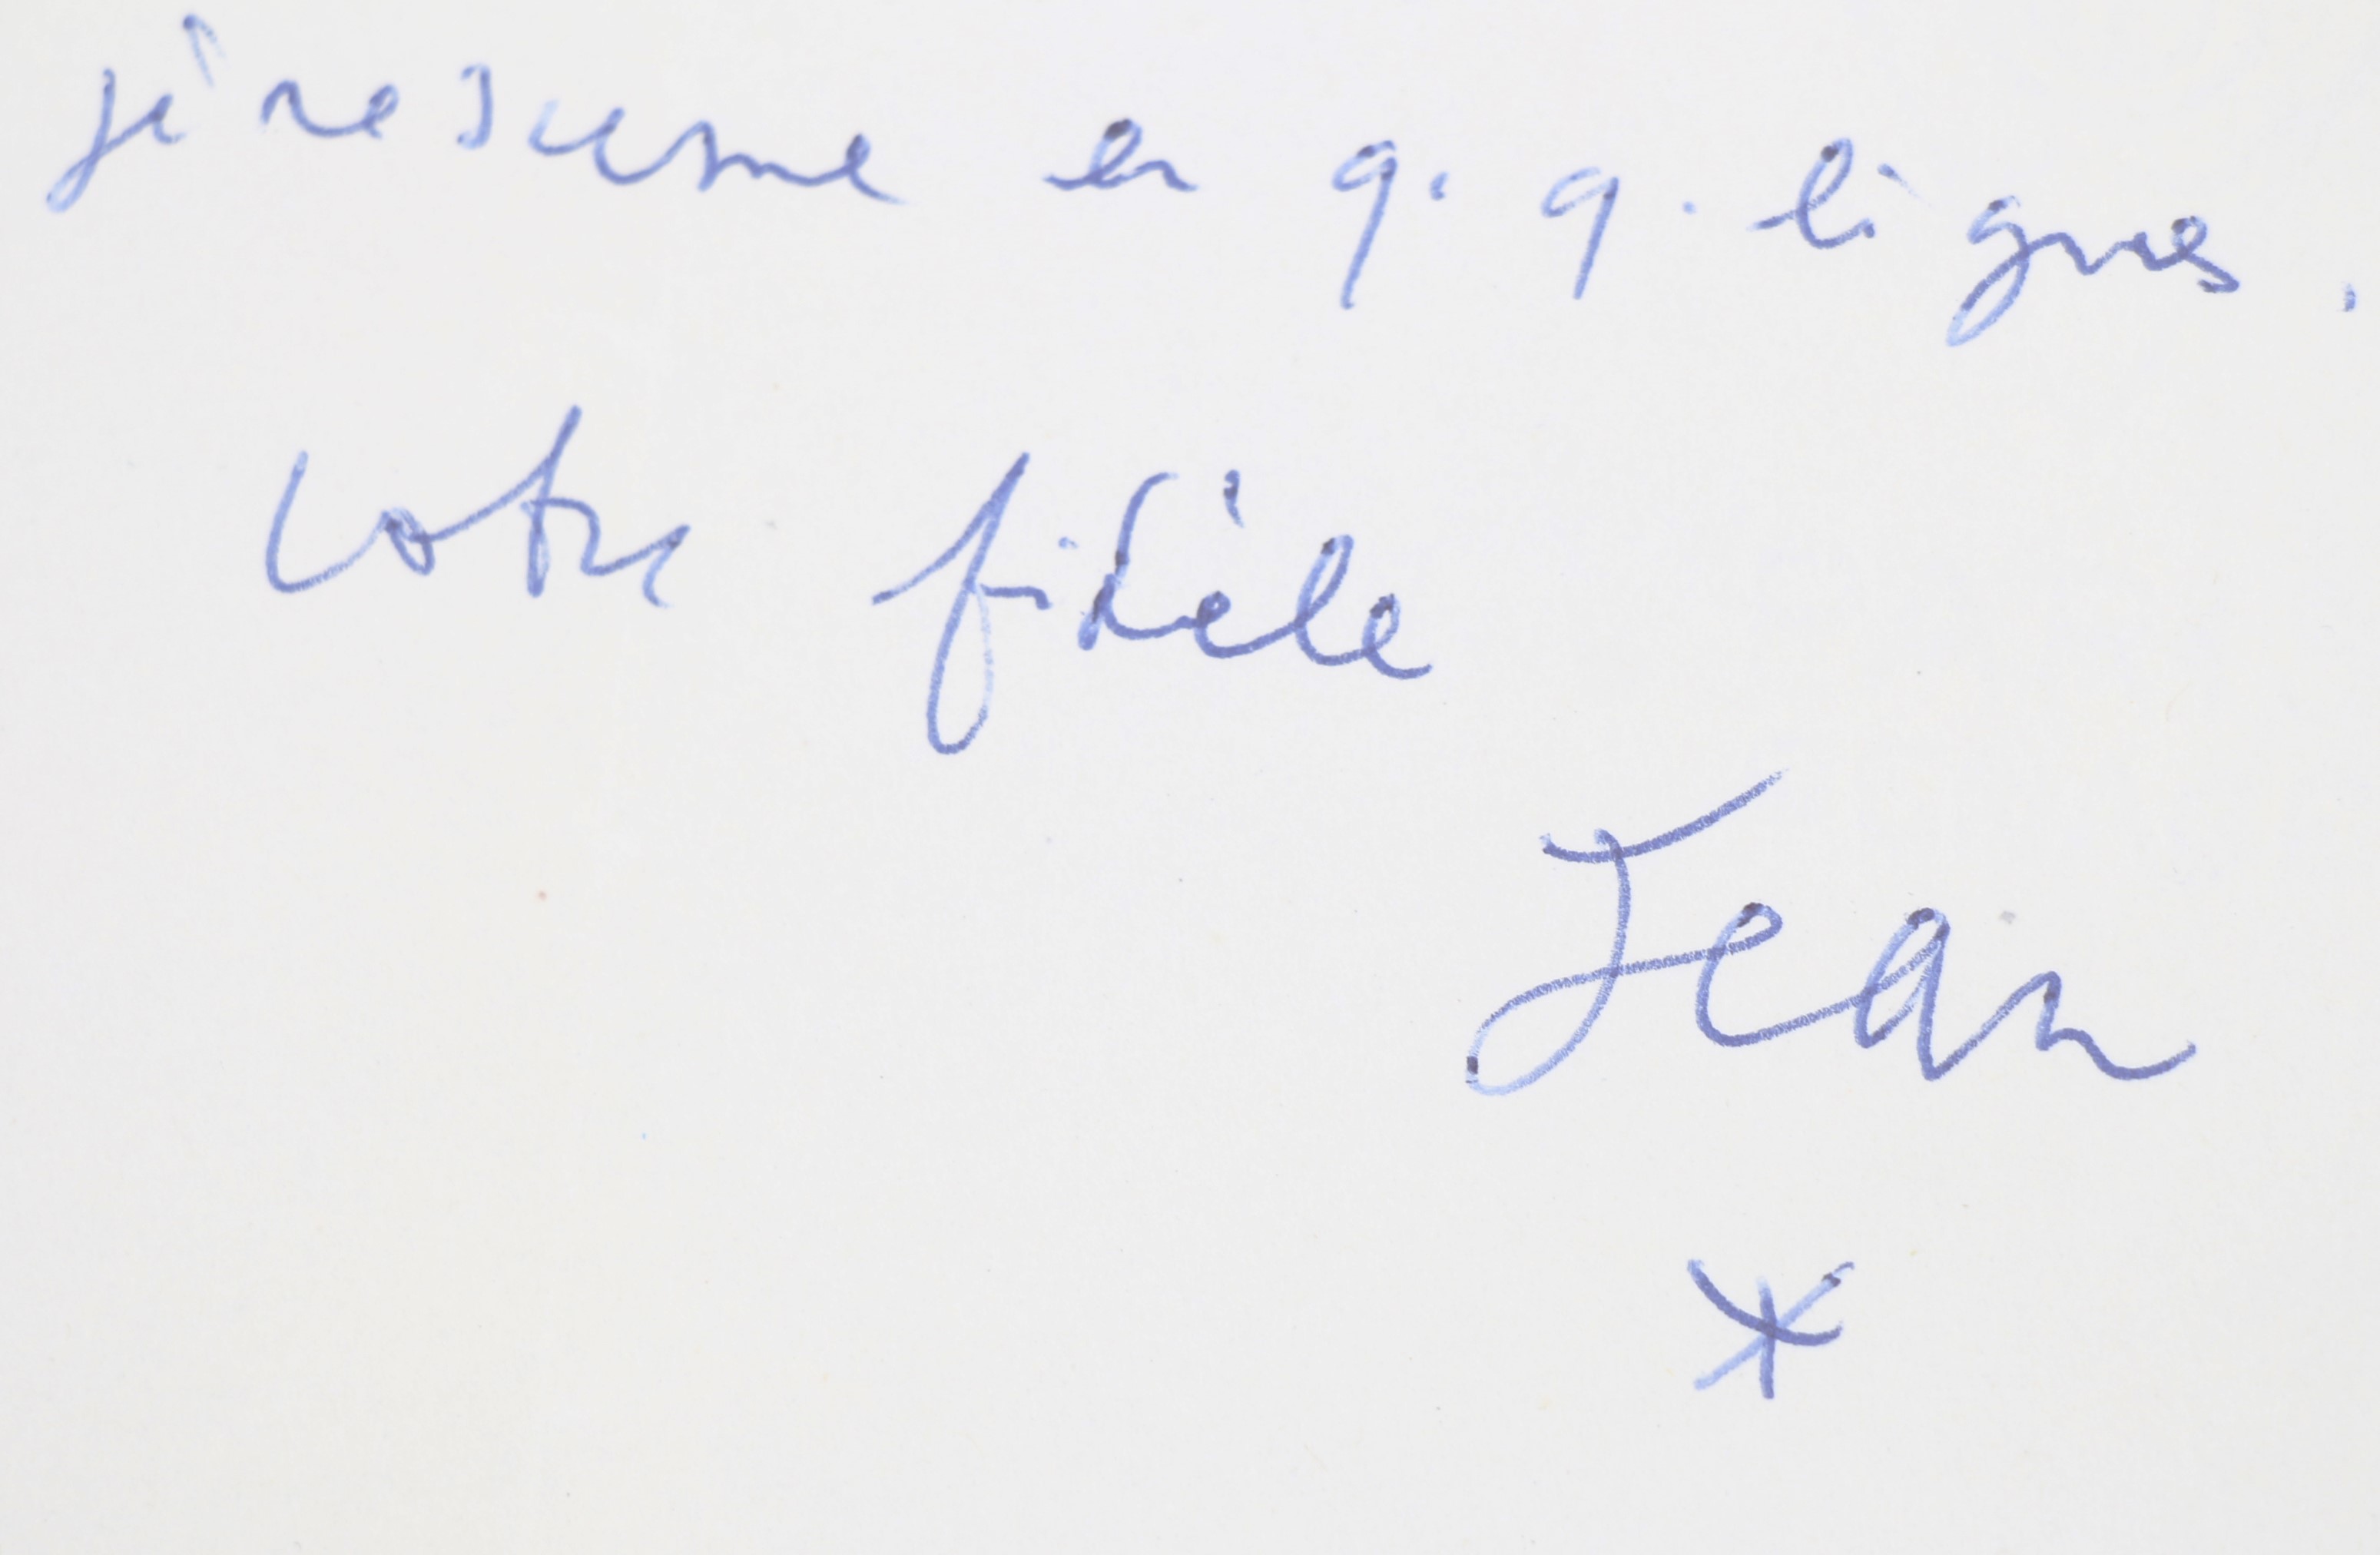 je résume en q. q. lignes.
votre fidèle
Jean
*